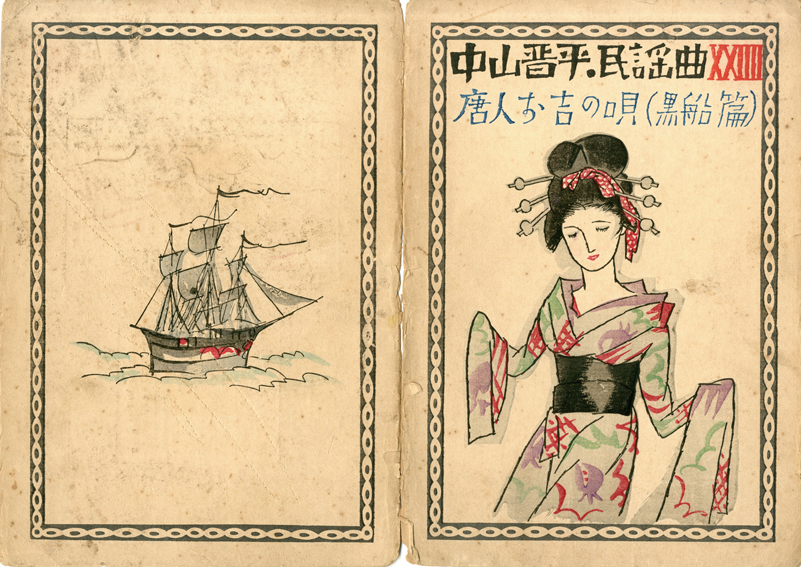 中山晋平・民謡曲XXIIII
唐人お吉の唄(黒船篇)